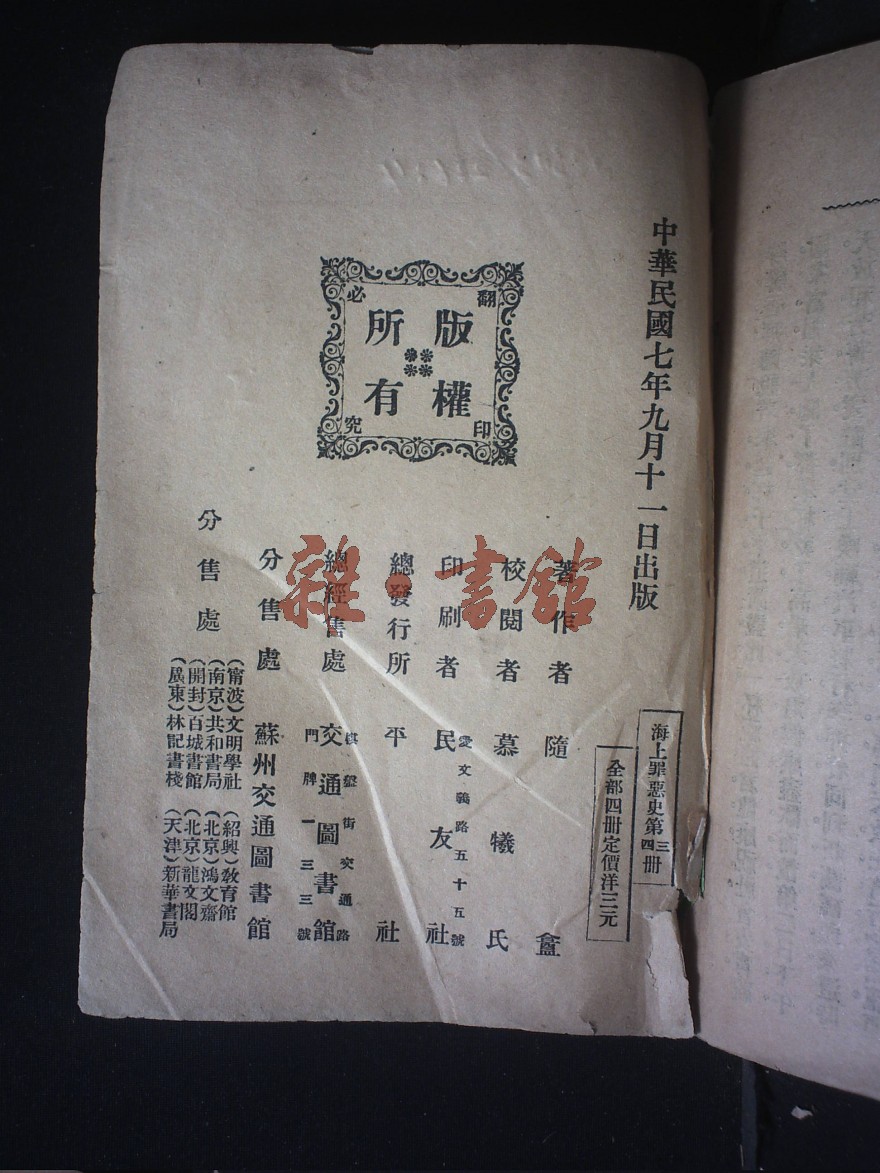 中華民國七年九月十一日出版
海上罪惡史第三四册
全部四册定價洋三元
翻印必究
版權所有
著作者隨盦
校閱者慕犧氏
印刷者民友社
愛文義路五十五號
總發行所平社
總經售處交通圖書館
棋盤街交通路
門牌一三三號
分售處蘇州交通圖書館
分售處
(甯波)文明學社(紹興)教育館
(南京)共和書局(北京)鴻文齋
(開封)百城書館(北京)龍文閣
(廣東)林記書棧(天津)新華書局
雜·書館